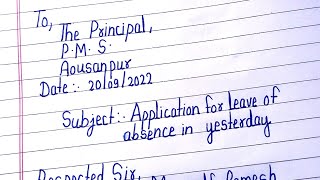 To,
The Principal,
P.M.S.
Aousanpur
Date:- 20/09/2022
Subject:- Application for leave of
absence in yesterday
Respected Sir,